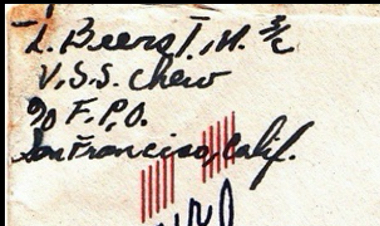 L. Beers T.M. 3/c
U.S.S. Chew
c/o F.P.O.
San Francisco, Calif.